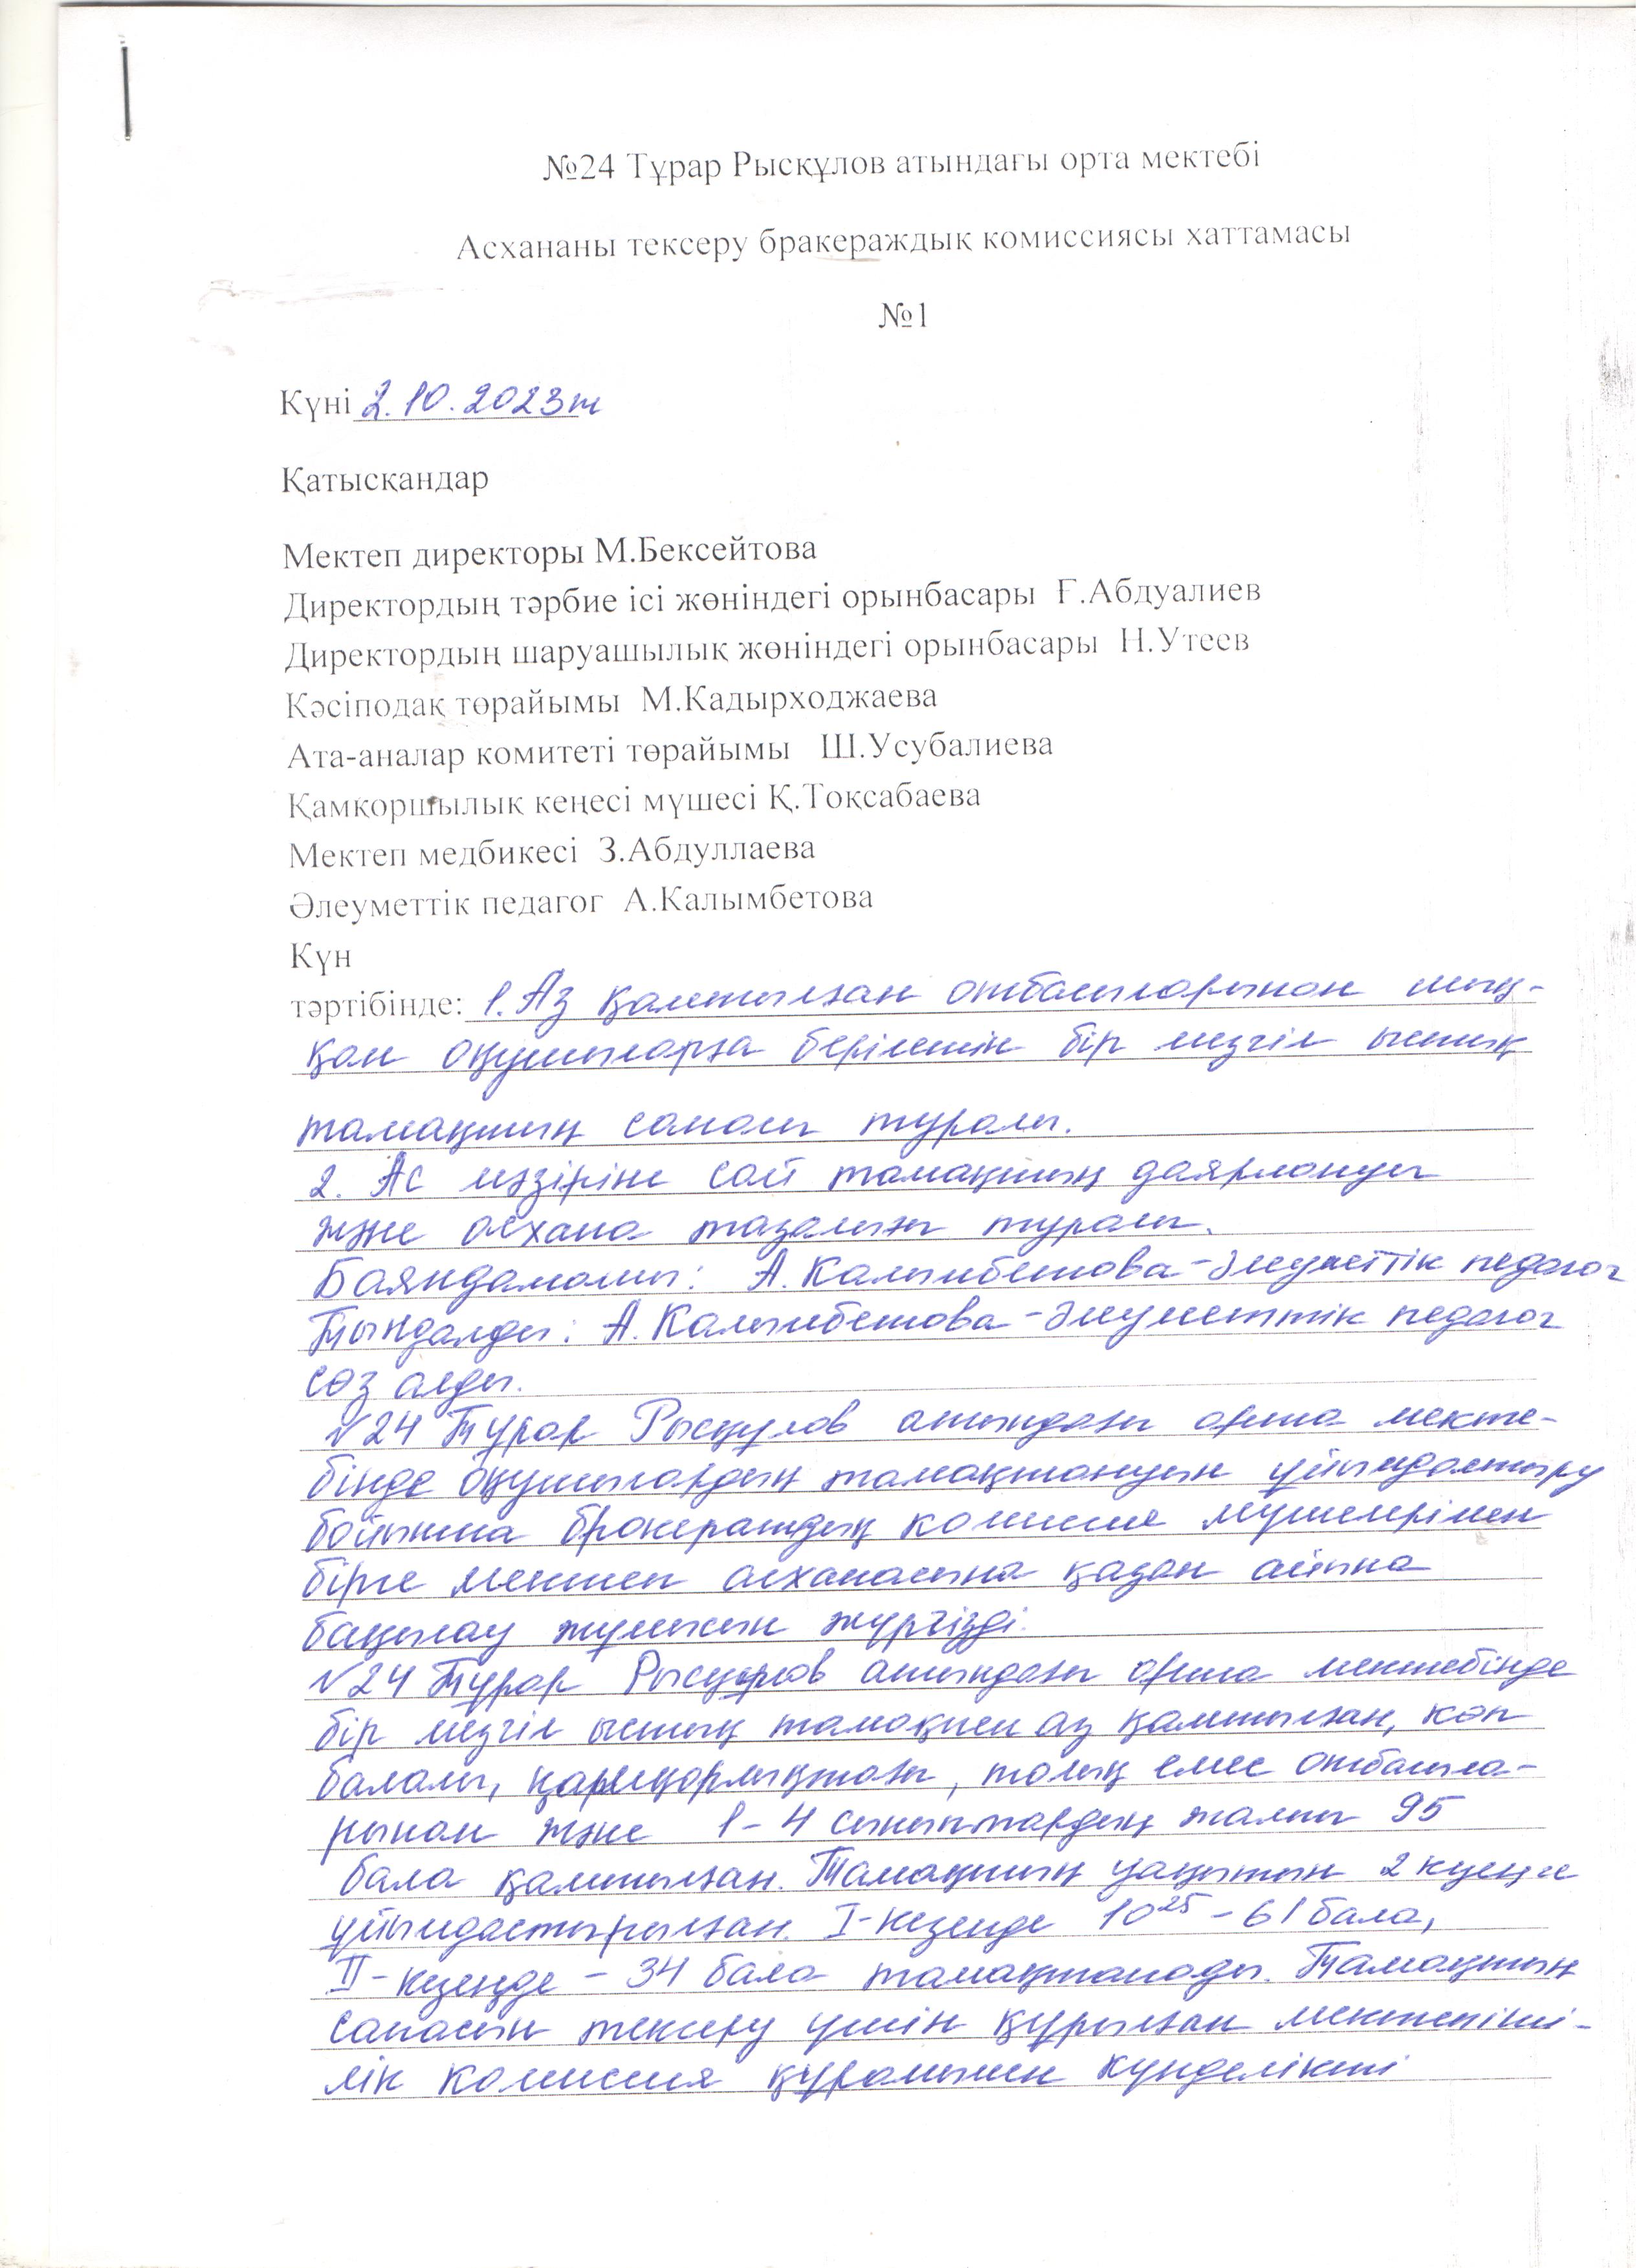 №24 Тұрар Рысқұлов атындағы орта мектебі
Асхананы тексеру бракераждық комиссиясы хаттамасы
№1
Күні 2.10.2023ж
Қатысқандар
Мектеп директоры М.Бексейтова
Директордың тәрбие ісі жөніндегі орынбасары Ғ.Абдуалиев
Директордың шаруашылық жөніндегі орынбасары Н.Утеев
Кәсіподақ төрайымы М.Кадырходжаева
Ата-аналар комитеті төрайымы Ш.Усубалиева
Қамқоршылық кеңесі мүшесі Қ.Тоқсабаева
Мектеп медбикесі З.Абдуллаева
Әлеуметтік педагог А.Калымбетова
Күн
тәртібінде: 1. Аз қамтылған отбасыларынан шық-
қан оқушыларға берілетін бір мезгіл ыстық
тамақтың сапасы туралы.
2. Ас мәзіріне сай тамақтың даярлануы
және асхана тазалығы туралы.
Баяндамашы: А. Калымбетова - Әлеуметтік педагог
Тыңдалды: А. Калымбетова - Әлеуметтік педагог
сөз алды.
№24 Тұрар Рысқулов атындағы орта мекте-
бінде оқушылардың тамақтануын ұйымдастыру
бойынша бракераждық комиссия мүшелерімен
бірге мектеп асханасына қазан айына
бақылау жұмысын жүргізді.
№24 Тұрар Рысқұлов атындағы орта мектебінде
бір мезгіл ыстық тамақпен аз қамтылған, көп
балалы, қамқорлықтағы, толық емес отбасыла-
рынан және 1-4 сыныптардың жалпы 95
бала қамтылған. Тамақтың уақытын 2 кезеңге
ұйымдастырылған. I-кезеңде 10²⁵ - 61 бала,
II-кезеңде - 34 бала тамақтанады. Тамақтың
сапасын тексеру үшін құрылған мектепіші-
лік комиссия құрамымен күнделікті